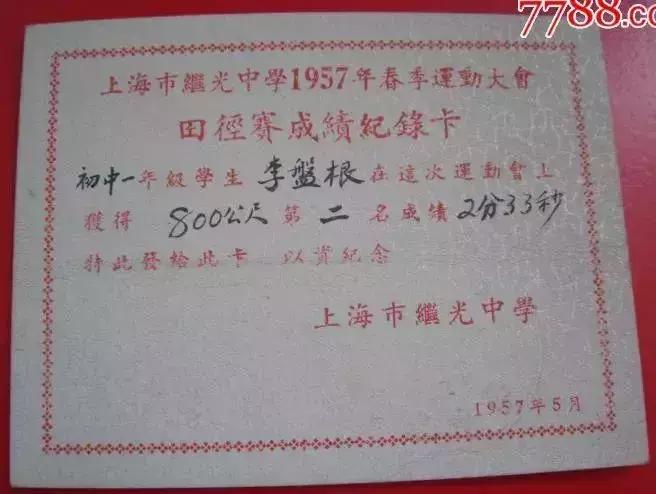 7788.co
上海市繼光中學1957年春季運動大會
田徑賽成績紀錄卡
初中一年級學生 李盤根 在這次運動會上
獲得 800公尺 第 二 名成績 2分33秒
特此發給此卡 以資紀念
上海市繼光中學
1957年5月